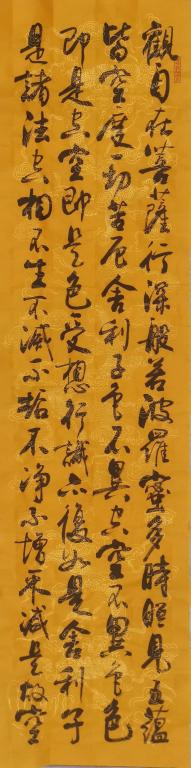 觀自在菩薩行深般若波羅蜜多時照見五蘊
皆空度一切苦厄舍利子色不異空空不異色色
即是空空即是色受想行識亦復如是舍利子
是諸法空相不生不滅不垢不淨不增不減是故空